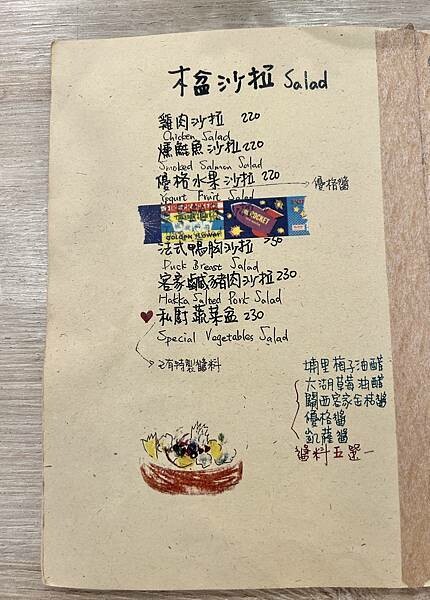 木盆沙拉 Salad
雞肉沙拉 220
Chicken Salad
燻鮭魚沙拉 220
Smoked Salmon Salad
優格水果沙拉 220 → 優格醬
Yogurt Fruit Salad
GOLDEN FLOWER
POCKET
法式鴨胸沙拉 250
Duck Breast Salad
客家鹹豬肉沙拉 230
Hakka Salted Pork Salad
♥ 私廚蔬菜盆 230
Special Vegetables Salad
→ 已有特製醬料
埔里梅子油醋
大湖草莓油醋
關西客家金桔醬
優格醬
凱薩醬
醬料五選一